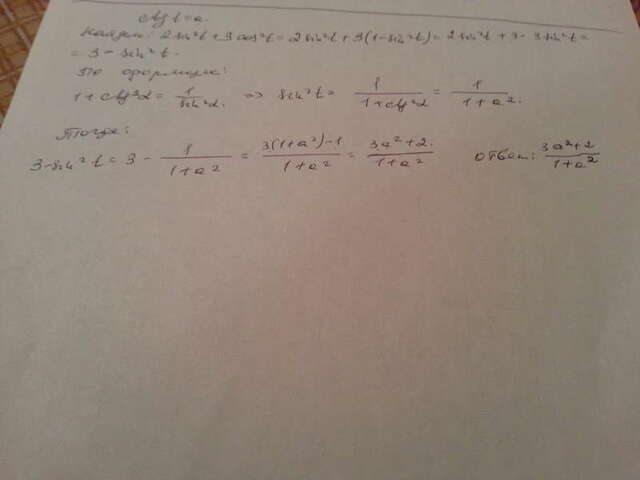 ctg t = a.
Найдем: 2 sin²t + 3 cos²t = 2 sin²t + 3(1 - sin²t) = 2 sin²t + 3 - 3 sin²t =
= 3 - sin²t.
По формуле:
1 + ctg²α = 1/sin²α. => sin²t = 1/(1 + ctg²α) = 1/(1 + a²).
Тогда:
3 - sin²t = 3 - 1/(1 + a²) = (3(1 + a²) - 1)/(1 + a²) = (3a² + 2)/(1 + a²) ответ: (3a² + 2)/(1 + a²)